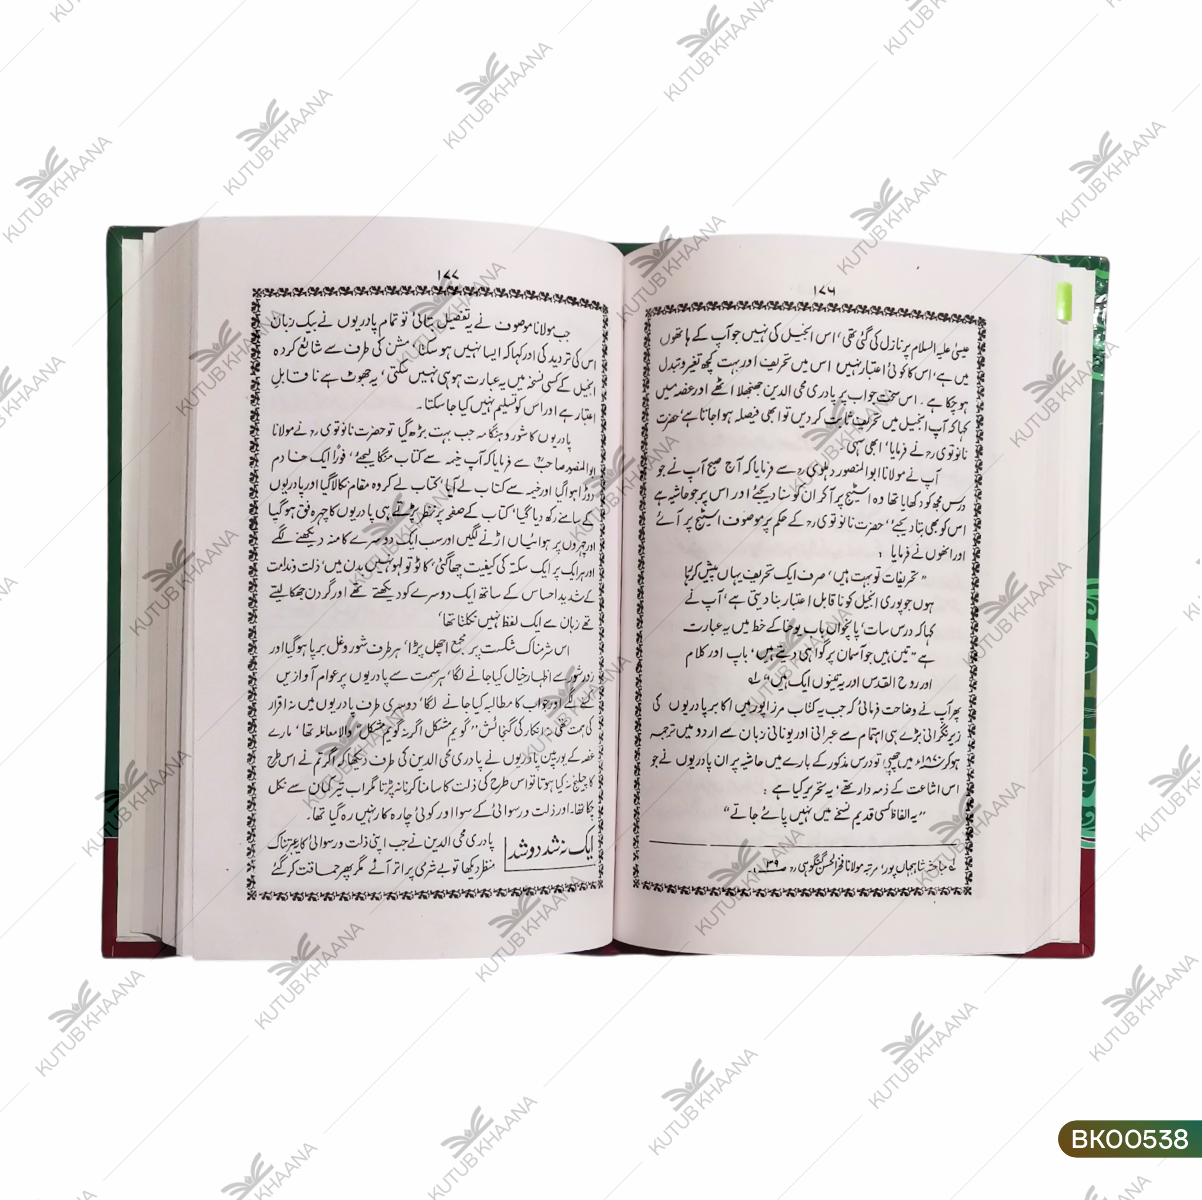 ۱۷۶
عیسیٰ علیہ السلام پر نازل کی گئی تھی، اس انجیل کی نہیں جو آپ کے ہاتھوں
میں ہے، اس کا کوئی اعتبار نہیں اس میں تحریف اور بہت کچھ تغیر و تبدل
ہو چکا ہے۔ اس سخت جواب پر پادری محی الدین جھنجھلا اٹھے اور غصہ میں
کہا کہ آپ انجیل میں تحریف ثابت کر دیں تو ابھی فیصلہ ہو جاتا ہے، حضرت
نانوتوی رح نے فرمایا، ابھی سہی
آپ نے مولانا ابوالمنصور دہلوی رح سے فرمایا کہ آج صبح آپ نے جو
درس مجھ کو دکھایا تھا وہ اسٹیج پر آکر ان کو سنا دیجئے اور اس پر جو حاشیہ ہے
اس کو بھی بتا دیجئے، حضرت نانوتوی رح کے حکم پر موصوف اسٹیج پر آئے
اور انھوں نے فرمایا :
“تحریفات تو بہت ہیں، صرف ایک تحریف یہاں پیش کرتا
ہوں جو پوری انجیل کو ناقابل اعتبار بنا دیتی ہے، آپ نے
کہا کہ درس سات، پانچواں باب یوحنا کے خط میں یہ عبارت
ہے “تین ہیں جو آسمان پر گواہی دیتے ہیں، باپ اور کلام
اور روح القدس اور یہ تینوں ایک ہیں” لہ
پھر آپ نے وضاحت فرمائی کہ جب یہ کتاب مرزا پور میں اکابر پادریوں کی
زیر نگرانی بڑے ہی اہتمام سے عبرانی اور یونانی زبان سے اردو میں ترجمہ
ہو کر ۱۸۷۰ء میں چھپی تو درس مذکور کے بارے میں حاشیہ پر ان پادریوں نے جو
اس اشاعت کے ذمہ دار تھے، یہ تحریر کیا ہے :
“یہ الفاظ کسی قدیم نسخے میں نہیں پائے جاتے”
لہ مباحثہ شاہجہاں پور، مرتبہ مولانا فخر الحسن گنگوہی رح ص ۳۹۔
۱۷۷
جب مولانا موصوف نے یہ تفصیل بتائی تو تمام پادریوں نے بیک زبان
اس کی تردید کی اور کہا کہ ایسا نہیں ہو سکتا، مشن کی طرف سے شائع کردہ
انجیل کے کسی نسخہ میں یہ عبارت ہو ہی نہیں سکتی، یہ جھوٹ ہے ناقابل
اعتبار ہے اور اس کو تسلیم نہیں کیا جا سکتا۔
پادریوں کا شور و ہنگامہ جب بہت بڑھ گیا تو حضرت نانوتوی رح نے مولانا
ابوالمنصور صاحب سے فرمایا کہ آپ خیمہ سے کتاب منگا لیجئے، فوراً ایک خادم
دوڑا ہوا گیا اور خیمہ سے کتاب لے آیا، کتاب لے کر وہ مقام نکالا گیا اور پادریوں
کے سامنے رکھ دیا گیا، کتاب کے صفحہ پر نظر پڑتے ہی پادریوں کا چہرہ فق ہو گیا
اور چہروں پر ہوائیاں اڑنے لگیں اور سب ایک دوسرے کا منہ دیکھنے لگے
اور ہر ایک پر ایک سکتے کی کیفیت چھا گئی، کاٹو تو لہو نہیں بدن میں، ذلت و ندامت
کے شدید احساس کے ساتھ ایک دوسرے کو دیکھتے تھے اور گردن جھکا لیتے
تھے زبان سے ایک لفظ نہیں نکلتا تھا،
اس شرمناک شکست پر مجمع اچھل پڑا، ہر طرف شور و غل برپا ہو گیا اور
زور شور سے اظہار خیال کیا جانے لگا، ہر سمت سے پادریوں پر عوام آوازیں
کسنے لگے اور جواب کا مطالبہ کیا جانے لگا، دوسری طرف پادریوں میں نہ اقرار
کی ہمت تھی نہ انکار کی گنجائش، “گویم مشکل اگر نہ گویم مشکل” والا معاملہ تھا، مارے
غصہ کے یورپین پادریوں نے پادری محی الدین کی طرف دیکھا کہ اگر تم نے اس طرح
کا چیلنج نہ کیا ہوتا تو اس طرح کی ذلت کا سامنا کرنا نہ پڑتا مگر اب تیر کمان سے نکل
چکا تھا۔ اور ذلت و رسوائی کے سوا اور کوئی چارہ کار نہیں رہ گیا تھا۔
ایک نہ شد دو شد
پادری محی الدین نے جب اپنی ذلت و رسوائی کا یہ عبرتناک
منظر دیکھا تو بے شرمی پر اتر آئے مگر پھر حماقت کر گئے
KUTUB KHAANA
BK00538